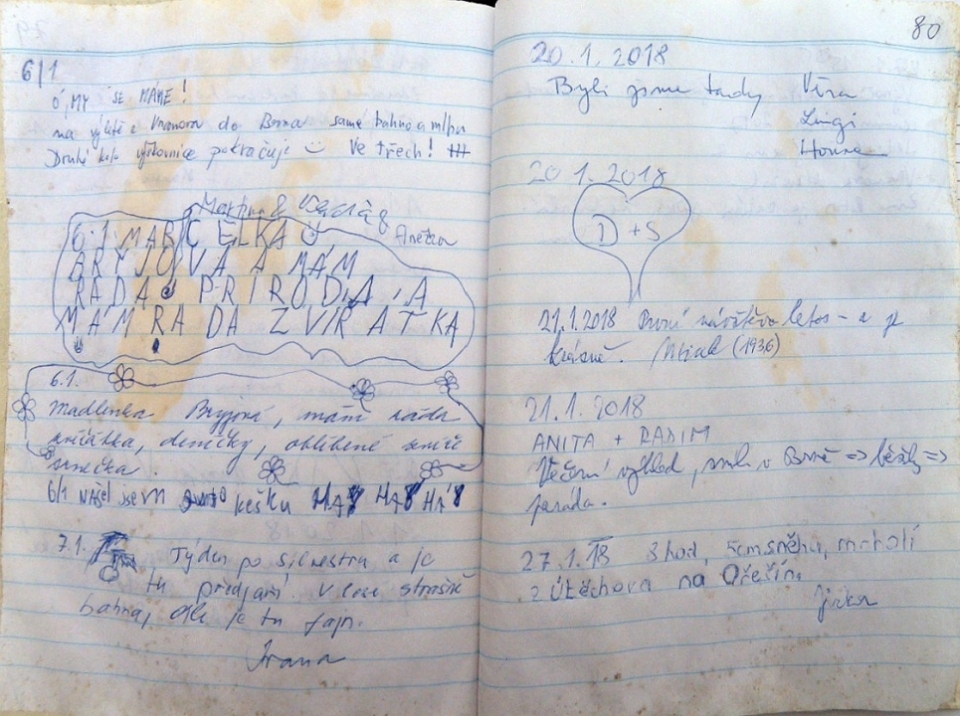 6/1
Ó, MY SE MÁME!
na výletě z Vranova do Brna samé bahno a mlha
Druhé kolo výškovnice pokračuje ve třech!
Martin &
Anežka
6.1. MARCELKA
BRYJOVÁ A MÁM
RÁDA PŘÍRODU A
MÁM RÁDA ZVÍŘÁTKA
6.1.
Madlenka Bryjová, mám ráda
zvířátka, deníčky, oblíbené zvíře
6/1 NAŠEL JSEM kešku HA HA HÁ
7.1. Týden po silvestru a je
tu předjaří. V lese strašně
bahna, ale je tu fajn.
Ivana
80
20.1.2018
Byli jsme tady Věra
Luigi
Honza
20.1.2018
D + S
21.1.2018 První návštěva letos - a je
krásně. (1936)
21.1.2018
ANITA + RADIM
Večerní výhled, sníh v Brně => běžky =>
paráda.
27.1.18 3 hod, 5cm sněhu, mrholí
z Útěchova na Ořešín.
Jirka